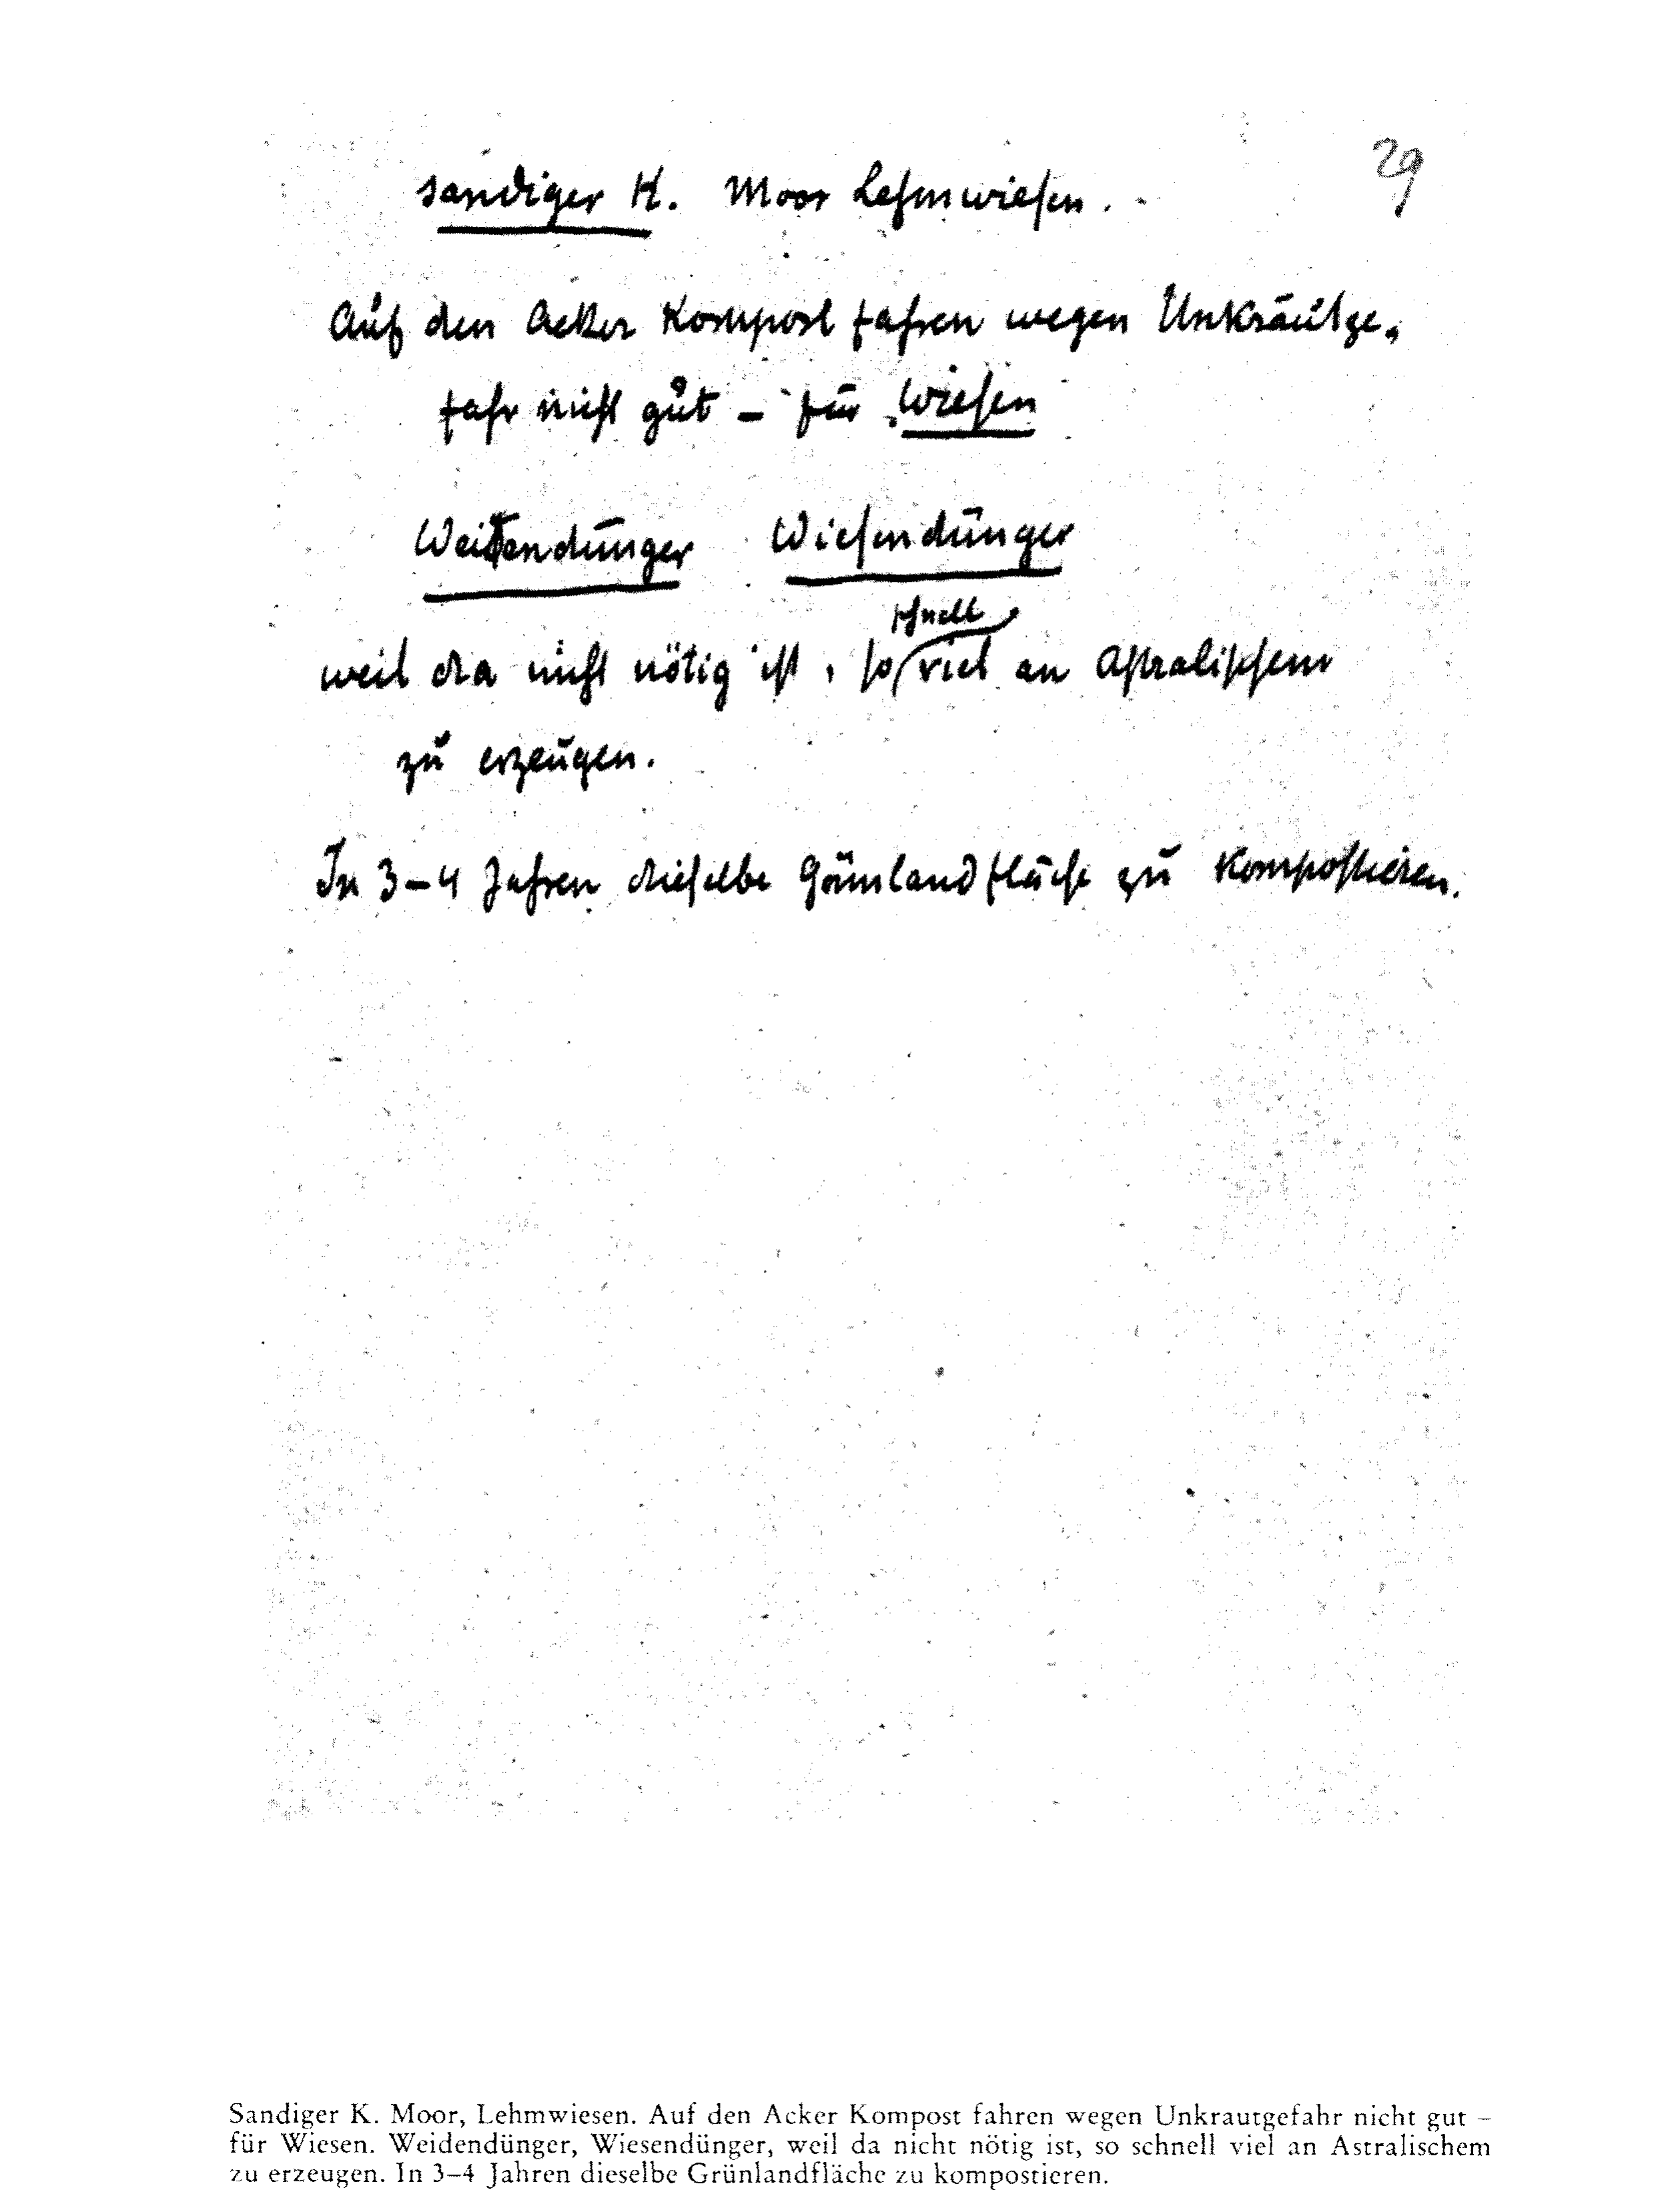 29
sandiger K. Moor Lehmwiesen.
Auf den Acker Kompost fahren wegen Unkrautge-
fahr nicht gut – für Wiesen
Weidendünger Wiesendünger
schnell
weil da nicht nötig ist, so viel an Astralischem
zu erzeugen.
In 3–4 Jahren dieselbe Grünlandfläche zu kompostieren.
Sandiger K. Moor, Lehmwiesen. Auf den Acker Kompost fahren wegen Unkrautgefahr nicht gut –
für Wiesen. Weidendünger, Wiesendünger, weil da nicht nötig ist, so schnell viel an Astralischem
zu erzeugen. In 3–4 Jahren dieselbe Grünlandfläche zu kompostieren.